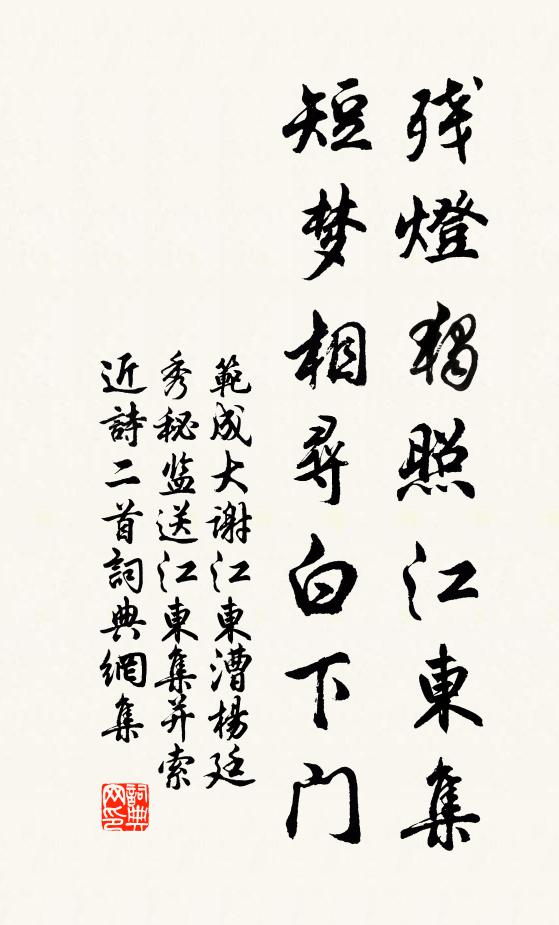 残燈獨照江東集
短梦相尋白下門
範成大謝江東漕楊廷
秀秘监送江東集并索
近詩二首詞典網集
詞典
网印